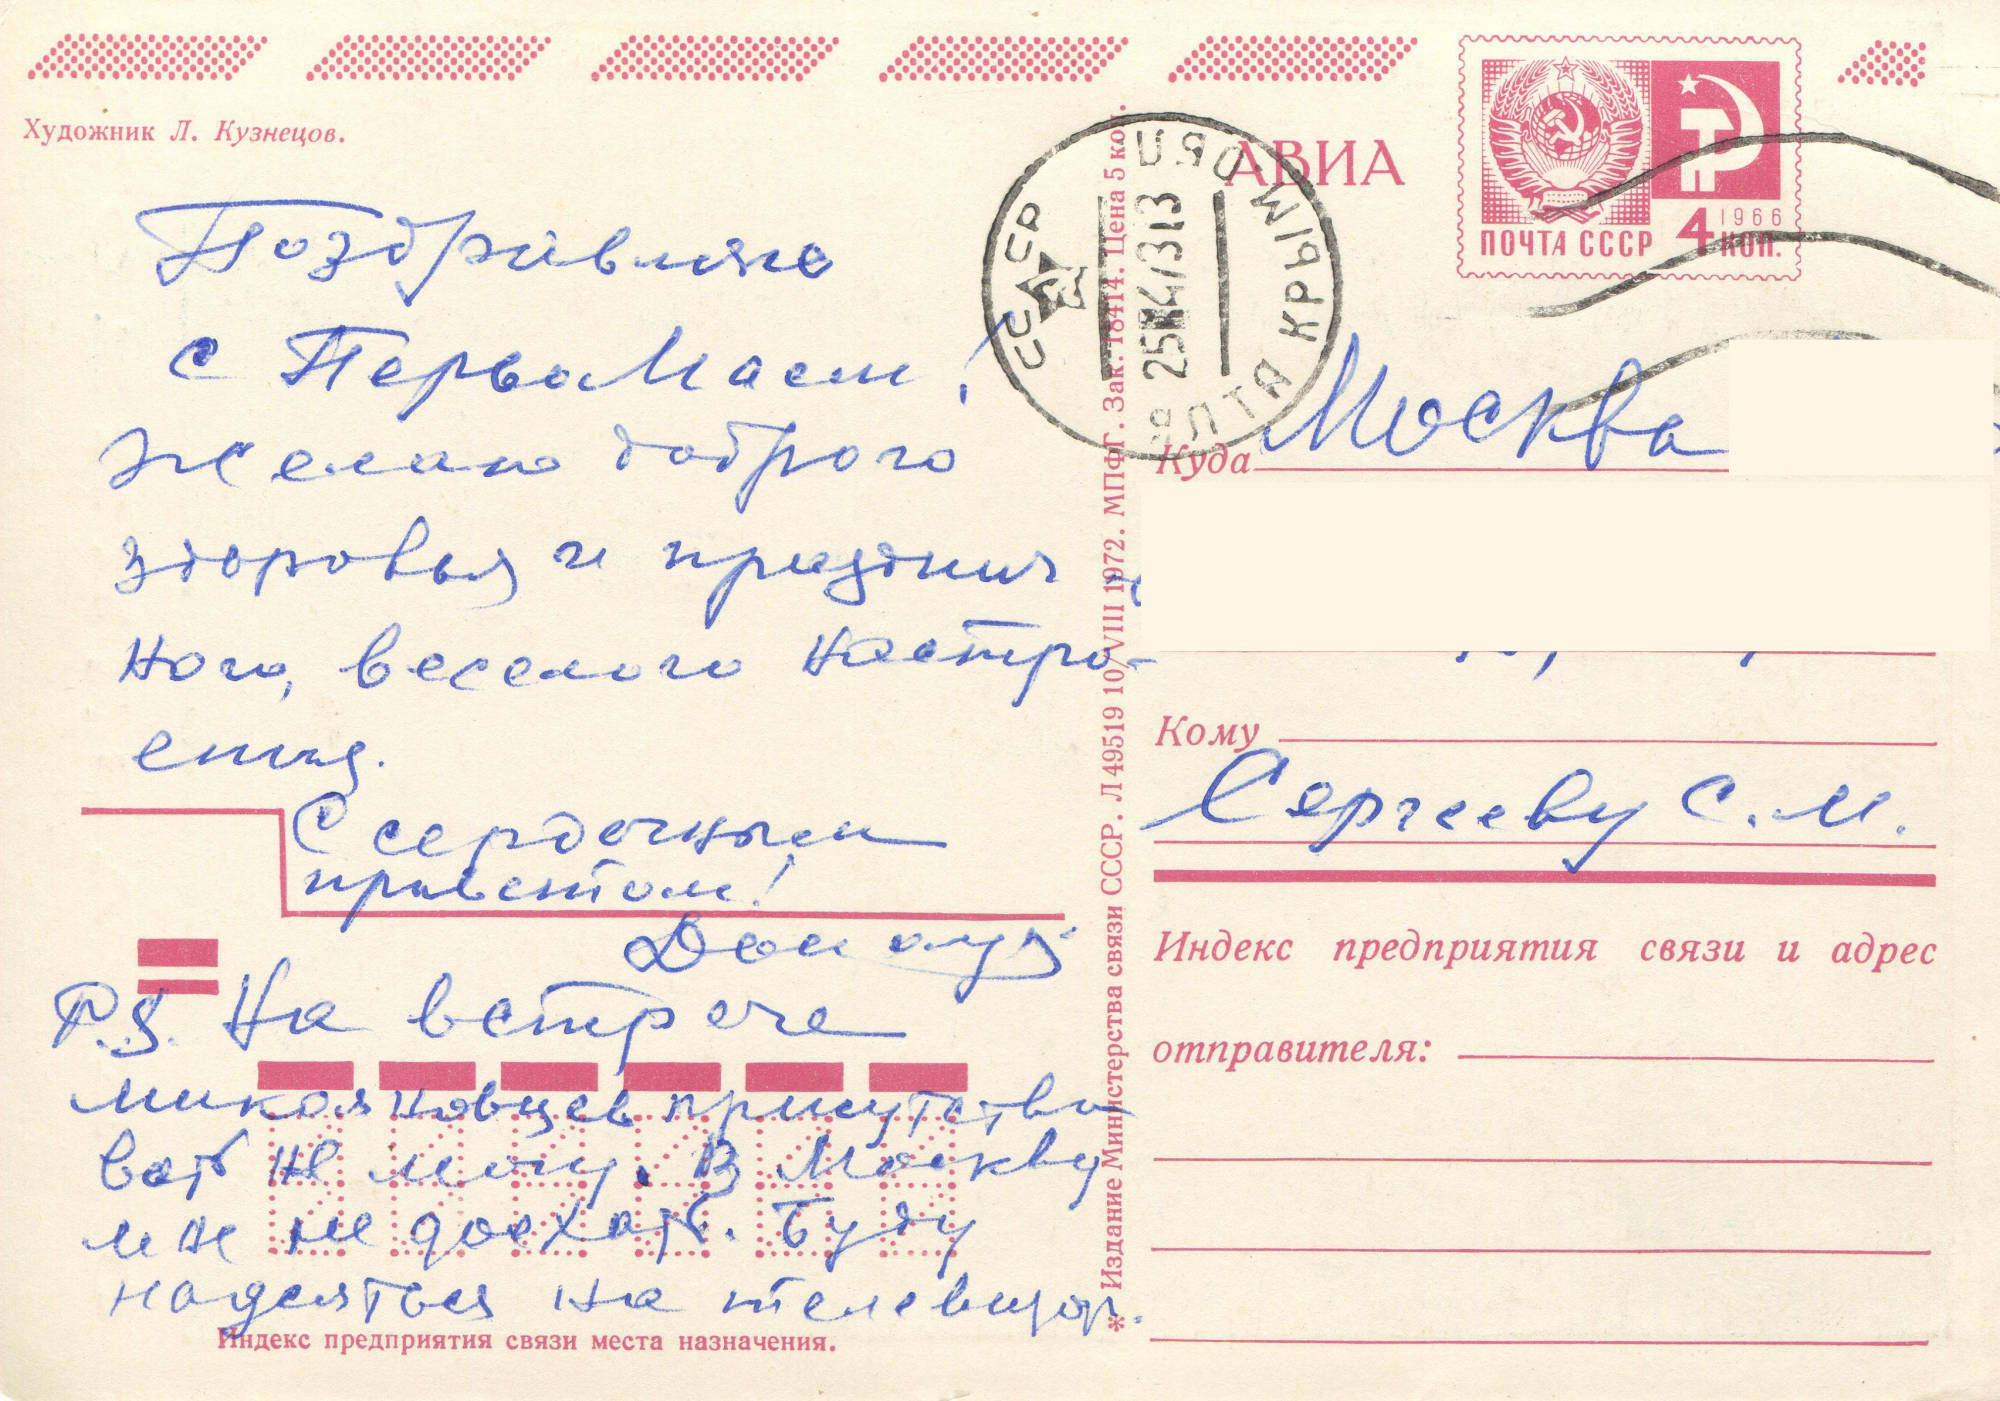 Художник Л. Кузнецов.
Поздравляю
с ПервоМаем!
Желаю доброго
здоровья и празднич
ного, веселого настро-
ения.
С сердечным
приветом!
P.S. На встрече
микояновцев присутство
вать не могу. В Москву
мне не доехать. Буду
надеяться на телевизор.
Индекс предприятия связи места назначения.
* Издание Министерства связи СССР. Л 49519 10/VIII 1972. МПФГ. Зак. 18414. Цена 5 коп.
АВИА
ПОЧТА СССР
1966
4 КОП.
СССР
ЯЛТА КРЫМ. ОБЛ
Куда Москва
Кому
Сергееву С. М.
Индекс предприятия связи и адрес
отправителя: